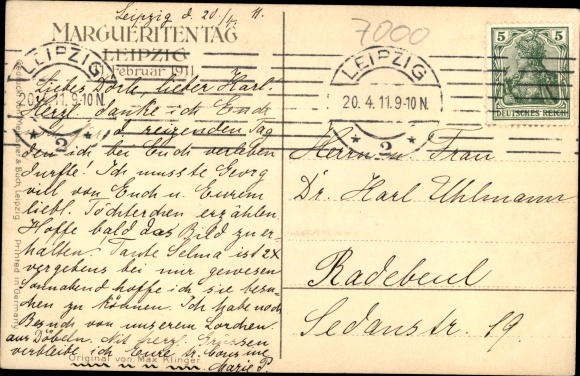 Leipzig d. 20./4. 11.
7000
MARGUERITENTAG
LEIPZIG
Februar 1911
LEIPZIG
20.4.11.9-10N.
* 2 *
LEIPZIG
20.4.11.9-10N.
* 2 *
5 5
DEUTSCHES REICH
Liebes Dorle, lieber Karl.
Herzl. danke ich Euch
f. d. reizenden Tag
den ich bei Euch verleben
durfte! Ich musste Georg
viel von Euch u. Eurem
liebl. Töchterchen erzählen
Hoffe bald das Bild zu er-
halten! Tante Selma ist 2x
vergebens bei mir gewesen
Sonnabend hoffe ich sie besu-
chen zu können. Ich habe noch
Besuch von unserem Lorchen
aus Döbeln. Mit herzl. Grüssen
verbleibe ich Eure tr. Cousine
Marie P.
Herrn u. Frau
Dr. Karl Uhlmann
Radebeul
Sedanstr. 19.
Original von Max Klinger
Printed in Germany